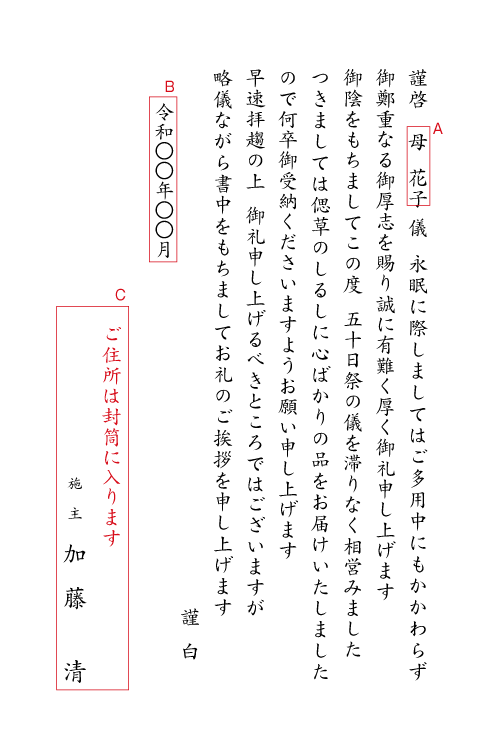 謹啓 母 花子 儀 永眠に際しましてはご多用中にもかかわらず
御鄭重なる御厚志を賜り誠に有難く厚く御礼申し上げます
御陰をもちましてこの度 五十日祭の儀を滞りなく相営みました
つきましては偲草のしるしに心ばかりの品をお届けいたしました
ので何卒御受納くださいますようお願い申し上げます
早速拝趨の上 御礼申し上げるべきところではございますが
略儀ながら書中をもちましてお礼のご挨拶を申し上げます
謹白
令和〇〇年〇〇月
ご住所は封筒に入ります
施主 加藤 清
A
B
C